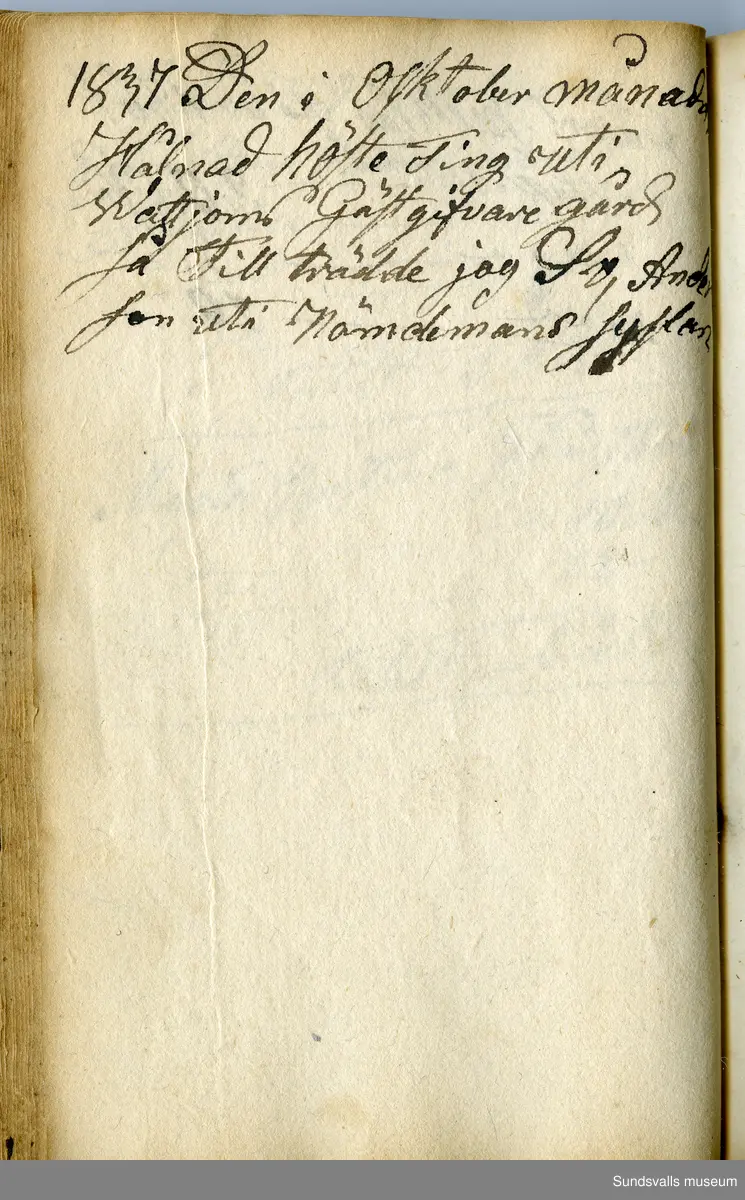 1837 Den i Ocktober månad
Hålnad höste Ting uti
Wattjoms Gästgifvare gård
så Till trädde jag Ander
son uti Nämdemans sysslan
Sundsvalls museum